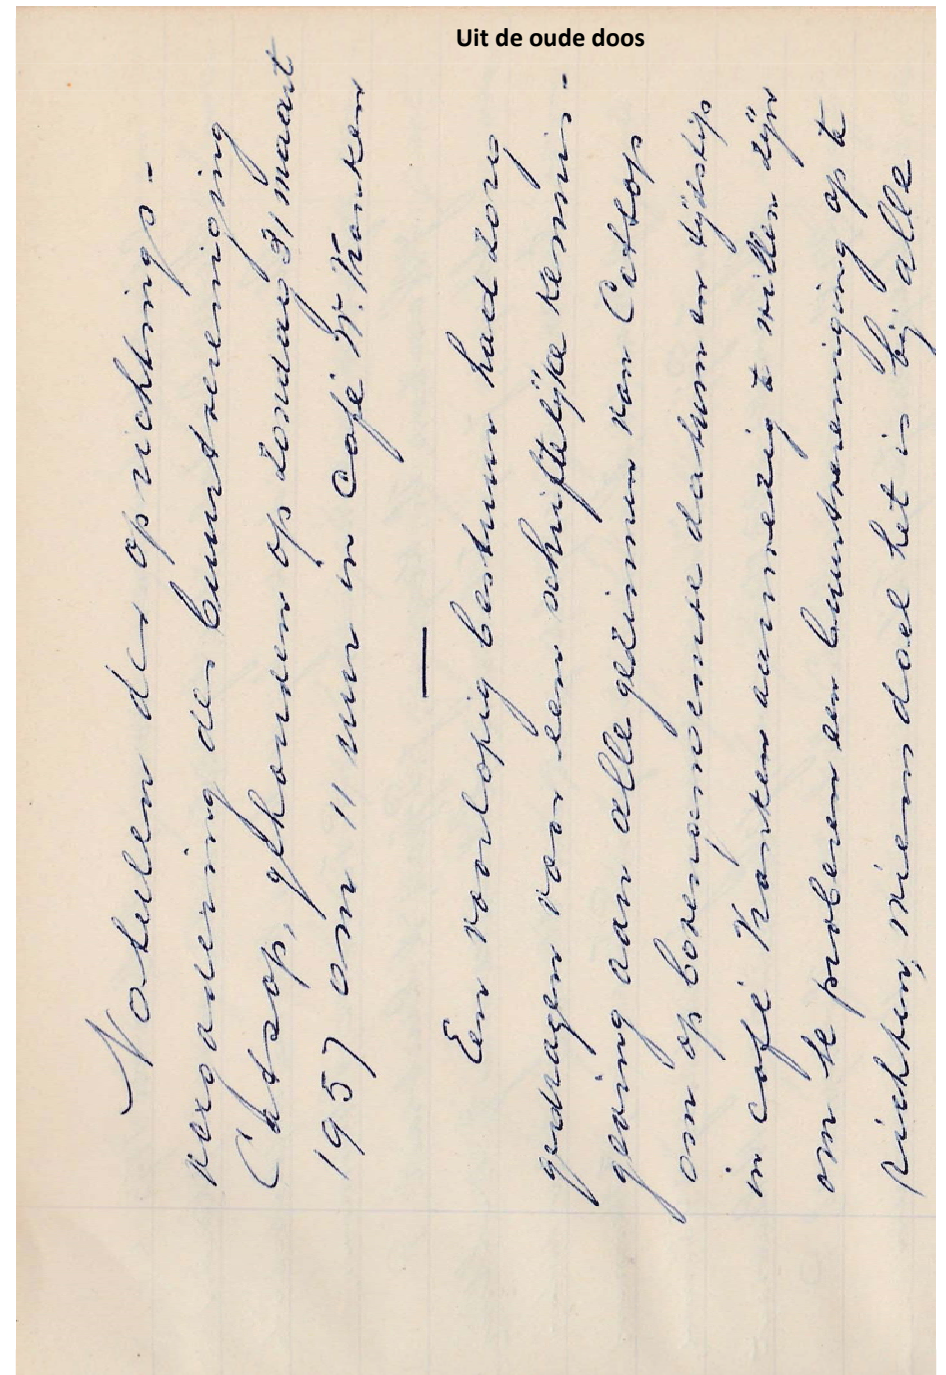 Uit de oude doos
Notulen der oprichtings-
vergadering der buurtvereniging
Catsop, gehouden op zondag 31 maart
1957 om 11 uur in café W. Kranken
Een voorlopig bestuur had zorg
gedragen voor een schriftelijke kennis-
geving aan alle gezinnen van Catsop
om op bovengenoemde datum en tijdstip
in café Kranken aanwezig te willen zijn
om te proberen een buurtvereniging op te
richten, wiens doel het is bij alle